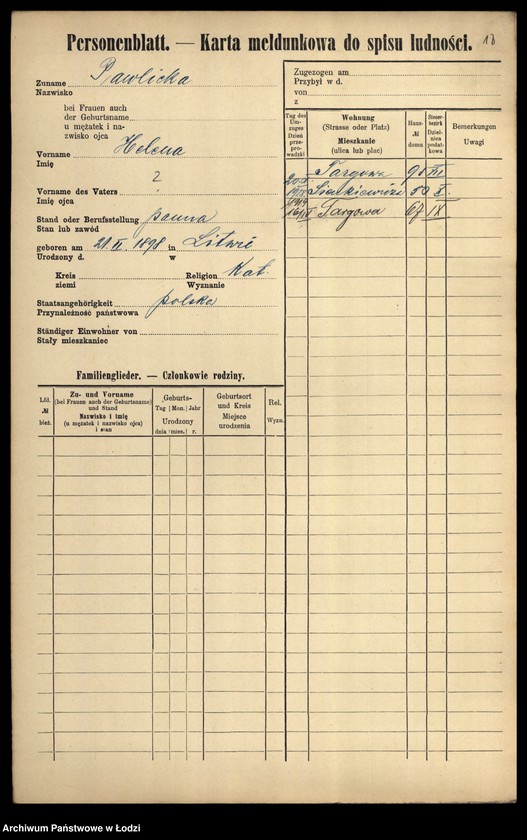 Personenblatt. — Karta meldunkowa do spisu ludności. 18
Zuname Pawlicka
Nazwisko
bei Frauen auch
der Geburtsname
u mężatek i na-
zwisko ojca
Vorname Helena
Imię
Vorname des Vaters
Imię ojca
Stand oder Berufsstellung panna
Stan lub zawód
geboren am 21. II. 1898 in
Urodzony d. w
Kreis Religion Kat.
ziemi Wyznanie
Staatsangehörigkeit polska
Przynależność państwowa
Ständiger Einwohner von
Stały mieszkaniec
Zugezogen am
Przybył w d.
von
z
Tag des Um-zuges Dzień przepro-wadzki
Wohnung (Strasse oder Platz) Mieszkanie (ulica lub plac)
Haus-№ domu
Steuer-bezirk Dziel-nica podat-kowa
Bemerkungen Uwagi
Targowa
Sienkiewicza 59 X.
Targowa 67 IX
Familienglieder. — Członkowie rodziny.
Lfd. № bież.
Zu- und Vorname (bei Frauen auch der Geburtsname) und Stand Nazwisko i imię (u mężatek i nazwisko ojca) i stan
Geburts- Tag Mon. Jahr Urodzony dnia mies. r.
Geburtsort und Kreis Miejsce urodzenia
Rel. Wyzn.
Archiwum Państwowe w Łodzi